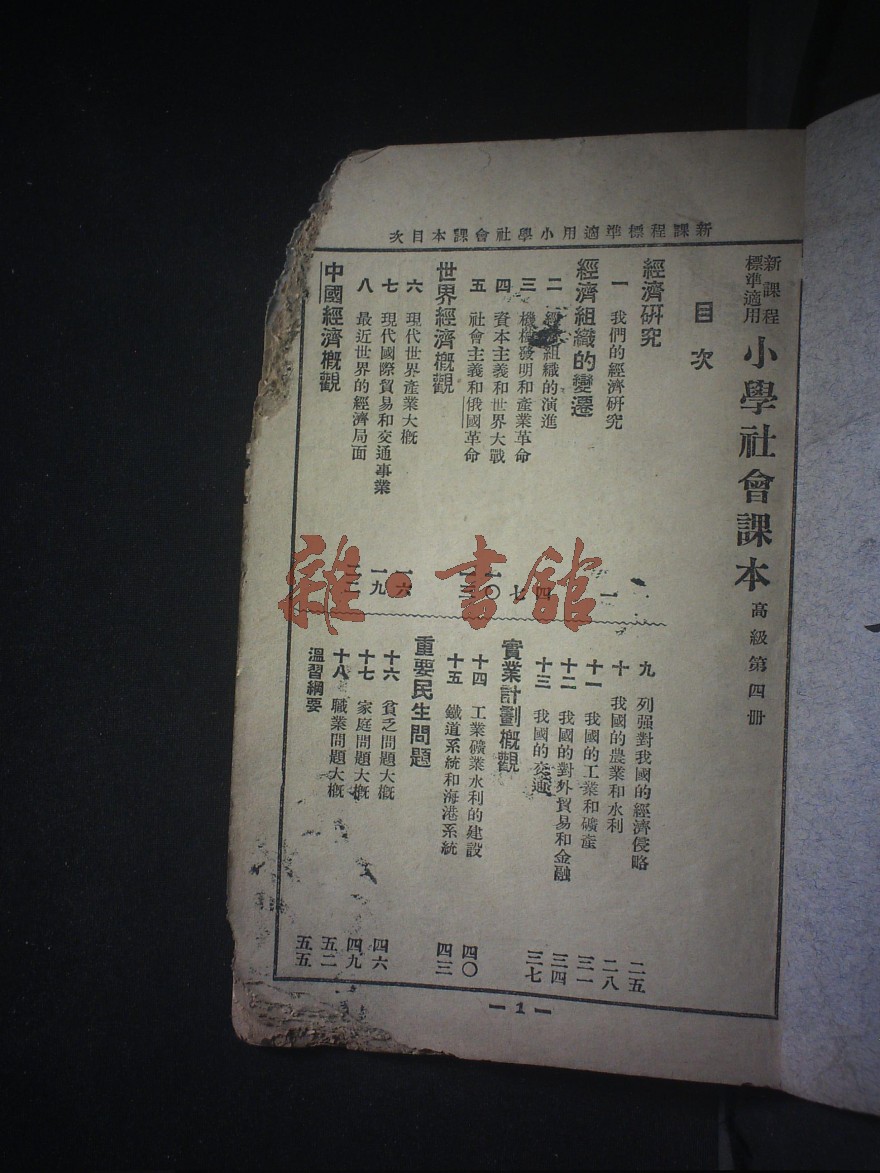 新課程標準適用小學社會課本目次
新課程
標準適用
小學社會課本 高級第四冊
目次
經濟研究
一 我們的經濟研究 一
經濟組織的變遷
二 經濟組織的演進 四
三 機械發明和產業革命 七
四 資本主義和世界大戰 一〇
五 社會主義和俄國革命 一三
世界經濟概觀
六 現代世界產業大概 一六
七 現代國際貿易和交通事業 一九
八 最近世界的經濟局面 二二
中國經濟概觀
九 列强對我國的經濟侵略 二五
十 我國的農業和水利 二八
十一 我國的工業和礦產 三一
十二 我國的對外貿易和金融 三四
十三 我國的交通 三七
實業計劃概觀
十四 工業礦業水利的建設 四〇
十五 鐵道系統和海港系統 四三
重要民生問題
十六 貧乏問題大概 四六
十七 家庭問題大概 四九
十八 職業問題大概 五二
溫習綱要 五五
— 1 —
雜·書館